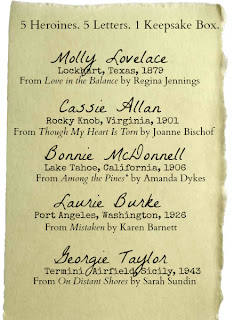 5 Heroines. 5 Letters. 1 Keepsake Box.
Molly Lovelace
Lockhart, Texas, 1879
From Love in the Balance by Regina Jennings
Cassie Allan
Rocky Knob, Virginia, 1901
From Though My Heart Is Torn by Joanne Bischof
Bonnie McDonnell
Lake Tahoe, California, 1906
From Among the Pines* by Amanda Dykes
Laurie Burke
Port Angeles, Washington, 1926
From Mistaken by Karen Barnett
Georgie Taylor
Termini Airfield, Sicily, 1943
From On Distant Shores by Sarah Sundin